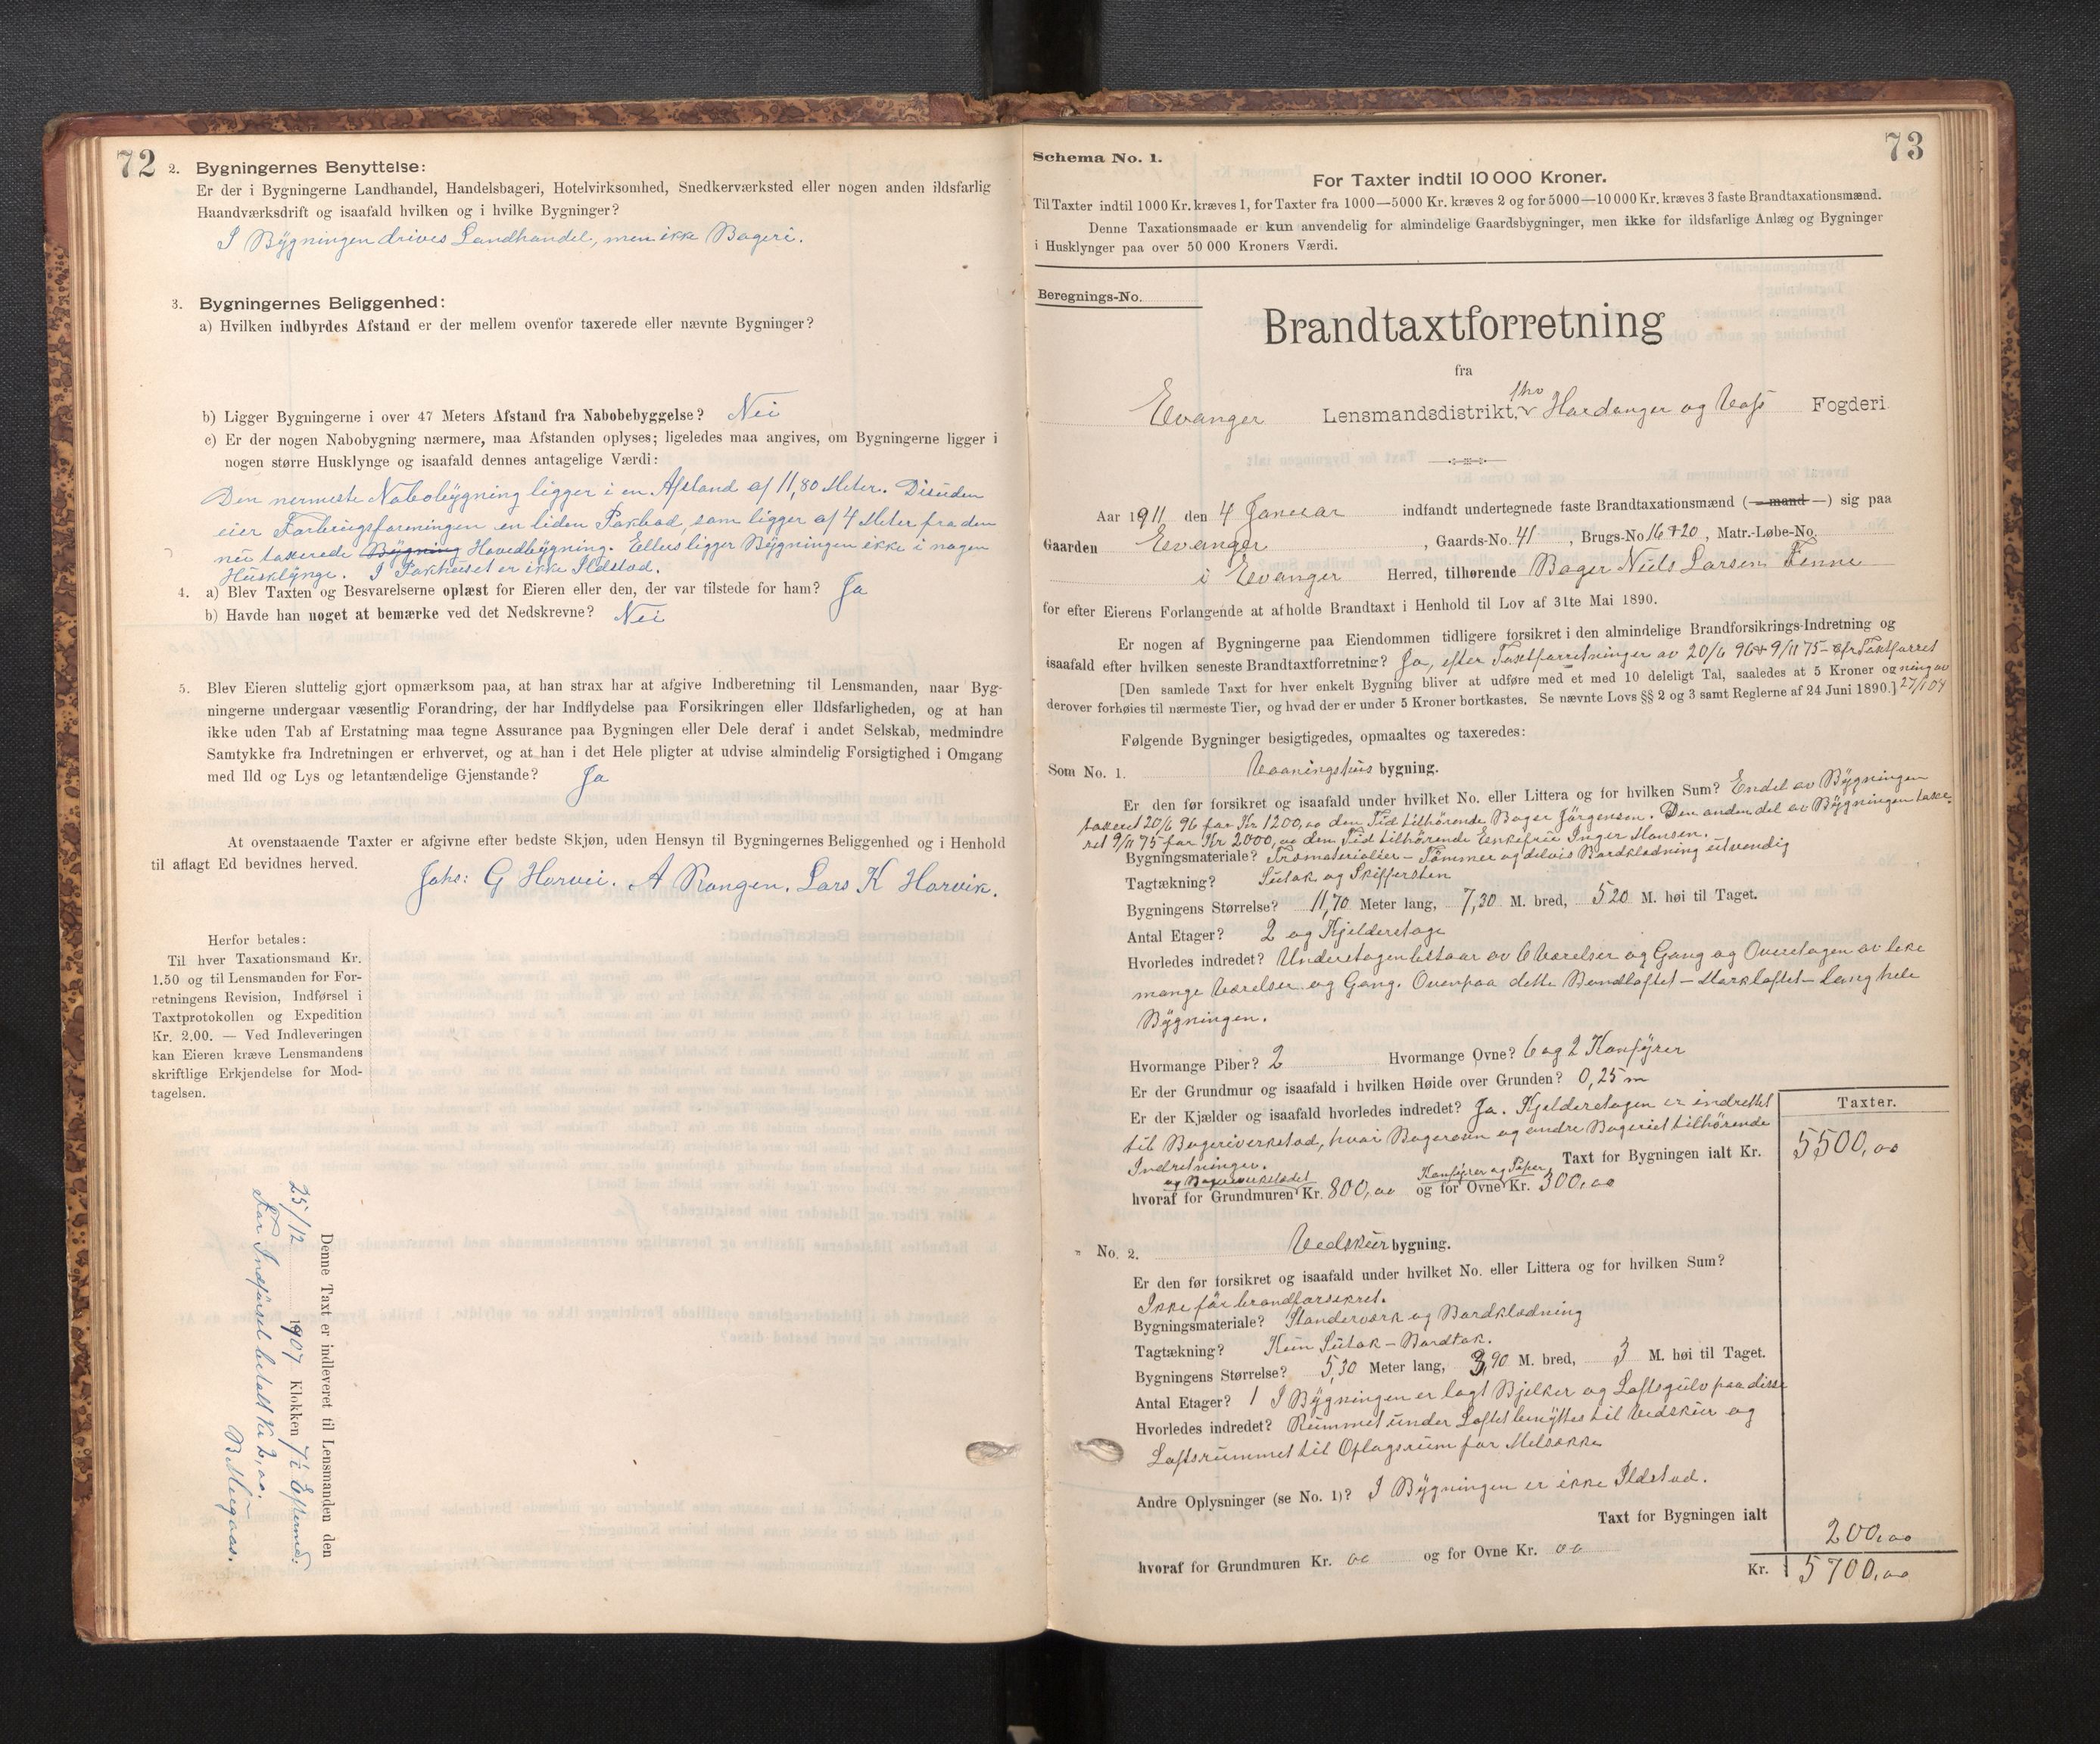 72
2. Bygningernes Benyttelse:
Er der i Bygningerne Landhandel, Handelsbageri, Hotelvirksomhed, Snedkerværksted eller nogen anden ildsfarlig
Haandværksdrift og isaafald hvilken og i hvilke Bygninger?
I Bygningen drives Landhandel, men ikke Bageri.
3. Bygningernes Beliggenhed:
a) Hvilken indbyrdes Afstand er der mellem ovenfor taxerede eller nævnte Bygninger?
b) Ligger Bygningerne i over 47 Meters Afstand fra Nabobebyggelse? Nei
c) Er der nogen Nabobygning nærmere, maa Afstanden oplyses; ligeledes maa angives, om Bygningerne ligger i
nogen større Husklynge og isaafald dennes antagelige Værdi:
Den nermeste Nabobygning ligger i en Afstand af 11,80 Meter. Desuden
eier Forbrugsforeningen en liden Pakbod, som ligger af 4 Meter fra den
nu taxerede Bygning Hovedbygning. Ellers ligger Bygningen ikke i nogen
Husklynge. I Pakhuset er ikke Ildsted.
4. a) Blev Taxten og Besvarelserne oplæst for Eieren eller den, der var tilstede for ham? Ja
b) Havde han noget at bemærke ved det Nedskrevne? Nei
5. Blev Eieren sluttelig gjort opmærksom paa, at han strax har at afgive Indberetning til Lensmanden, naar Byg-
ningerne undergaar væsentlig Forandring, der har Indflydelse paa Forsikringen eller Ildsfarligheden, og at han
ikke uden Tab af Erstatning maa tegne Assurance paa Bygningen eller Dele deraf i andet Selskab, medmindre
Samtykke fra Indretningen er erhvervet, og at han i det Hele pligter at udvise almindelig Forsigtighed i Omgang
med Ild og Lys og letantændelige Gjenstande? Ja
At ovenstaaende Taxter er afgivne efter bedste Skjøn, uden Hensyn til Bygningernes Beliggenhed og i Henhold
til aflagt Ed bevidnes herved.
Johs: G Horvei. A Rongen. Lars K Horvik.
Herfor betales:
Til hver Taxationsmand Kr.
1.50 og til Lensmanden for For-
retningens Revision, Indførsel i
Taxtprotokollen og Expedition
Kr. 2.00. — Ved Indleveringen
kan Eieren kræve Lensmandens
skriftlige Erkjendelse for Mod-
tagelsen.
Denne Taxt er indleveret til Lensmanden den
23/12 1907 Klokken 7½ Efterm.
For Indførsel betalt Kr 2,00.
73
Schema No. 1.
For Taxter indtil 10 000 Kroner.
Til Taxter indtil 1000 Kr. kræves 1, for Taxter fra 1000—5000 Kr. kræves 2 og for 5000—10 000 Kr. kræves 3 faste Brandtaxationsmænd.
Denne Taxationsmaade er kun anvendelig for almindelige Gaardsbygninger, men ikke for ildsfarlige Anlæg og Bygninger
i Husklynger paa over 50 000 Kroners Værdi.
Beregnings-No.
Brandtaxtforretning
fra
Evanger Lensmandsdistrikt, Hardanger og Voss Fogderi
Aar 1911 den 4 Januar indfandt undertegnede faste Brandtaxationsmænd (—mand—) sig paa
Gaarden Evanger, Gaards-No. 41, Brugs-No 16 & 20, Matr.-Løbe-No.
i Evanger Herred, tilhørende Bager Niels Larsen Fenne
for efter Eierens Forlangende at afholde Brandtaxt i Henhold til Lov af 31te Mai 1890.
Er nogen af Bygningerne paa Eiendommen tidligere forsikret i den almindelige Brandforsikrings-Indretning og
isaafald efter hvilken seneste Brandtaxtforretning? Ja, efter Taxtforretninger av 20/6 96 & 9/11 75 - efr Taxtforret
ning av 27/1 04
[Den samlede Taxt for hver enkelt Bygning bliver at udføre med et med 10 deleligt Tal, saaledes at 5 Kroner og
derover forhøies til nærmeste Tier, og hvad der er under 5 Kroner bortkastes. Se nævnte Lovs §§ 2 og 3 samt Reglerne af 24 Juni 1890.]
Følgende Bygninger besigtigedes, opmaaltes og taxeredes:
Som No. 1. Vaaningshus bygning.
Er den før forsikret og isaafald under hvilket No. eller Littera og for hvilken Sum? Endel av Bygningen
taxeret 20/6 96 for Kr 1200,00 den Tid tilhörende Bager Jörgensen. Den anden del av Bygningen taxe-
ret 9/11 75 for Kr 2000,00 den Tid tilhörende Enkefru Inger Monsen.
Bygningsmateriale? Træmaterialier - Tömmer og delvis Bordklædning utvendig
Tagtækning? Sutak og Skiffersten
Bygningens Størrelse? 11,70 Meter lang, 7,30 M. bred, 5,20 M. høi til Taget.
Antal Etager? 2 og Kjelderetage
Hvorledes indredet? Underetagen bestaar av 6 Værelser og Gang og Overetagen av like
mange Værelser og Gang. Ovenpaa dette Bundloftet - Mørkloftet - langs hele
Bygningen.
Hvormange Piber? 2 Hvormange Ovne? 6 og 2 Komfyrer
Er der Grundmur og isaafald i hvilken Høide over Grunden? 0,25 m
Er der Kjælder og isaafald hvorledes indredet? Ja. Kjelderetagen er indrettet
til Bageriverksted, hvor Bagerovn og andre Bageriet tilhörende
Indretninger.
Taxter.
Taxt for Bygningen ialt Kr. 5500,00
og Bageriverkstedet Komfyrer og Piper
hvoraf for Grundmuren Kr. 800,00 og for Ovne Kr. 300,00
" No. 2. Vedskur bygning.
Er den før forsikret og isaafald under hvilket No. eller Littera og for hvilken Sum?
Ikke för brandforsikret.
Bygningsmateriale? Standerværk og Bordklædning
Tagtækning? Kun Sutak - Bordtak.
Bygningens Størrelse? 5,30 Meter lang, 3,90 M. bred, 3 M. høi til Taget.
Antal Etager? 1 I Bygningen er lagt Bjelker og Loftsgulv paa disse
Hvorledes indredet? Rummet under Loftet benyttes til Vedskur og
Loftsrummet til Oplagsrum for Melsække
Andre Oplysninger (se No. 1)? I Bygningen er ikke Ildsted.
Taxt for Bygningen ialt 200,00
hvoraf for Grundmuren Kr. 00 og for Ovne Kr. 00
Kr. 5700,00